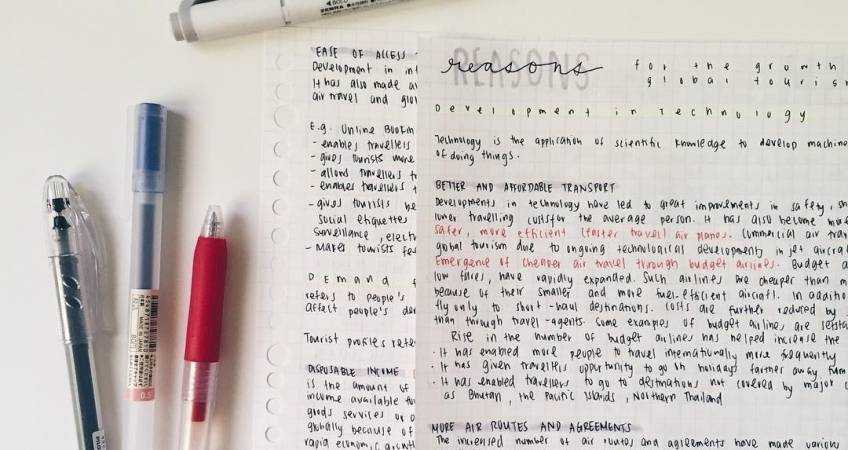 ZEBRA
EASE OF ACCESS
Development in in
It has also made a
air travel and glo
E.g. Online Bookin
- enables travellers
- gives tourists more
- allows travellers t
- enables travellers t
- gives tourists be
social etiquettes
surveillance, elect
- Makes tourists fe
Demand f
refers to people's
affect people's de
Tourist profiles refe
DISPOSABLE INCOME
is the amount of
income available to
goods services or
globally because of
rapid economic growth
REASONS
reasons for the growth
global touris
Development in Technology
Technology is the application of scientific knowledge to develop machine
of doing things.
BETTER AND AFFORDABLE TRANSPORT
Developments in technology have led to great improvements in safety, sh
lower travelling costs for the average person. It has also become
safer, more efficient (faster travel) air planes. Commercial air tra
global tourism due to ongoing technological developments in jet aircra
Emergence of cheaper air travel through budget airlines. Budget a
low fares, have rapidly expanded. Such airlines are cheaper than m
because of their smaller and more fuel-efficient aircraft. In additio
fly only to short-haul destinations. Costs are further reduced by
than through travel-agents. Some examples of budget airline are
Rise in the number of budget airlines has helped increase the
· It has enabled more people to travel internationally more frequently
· It has given travellers oppurtunity to go on holidays farther away from
· It has enabled travellers to go to destinations not covered by major
as Bhutan, the Pacific Islands, Northern Thailand
MORE AIR ROUTES AND AGREEMENTS
The increased number of air routes and agreements have made various
0.5